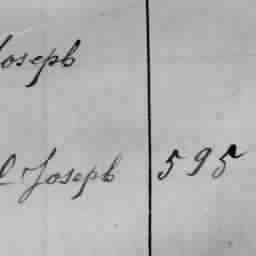 Joseph
Joseph 595